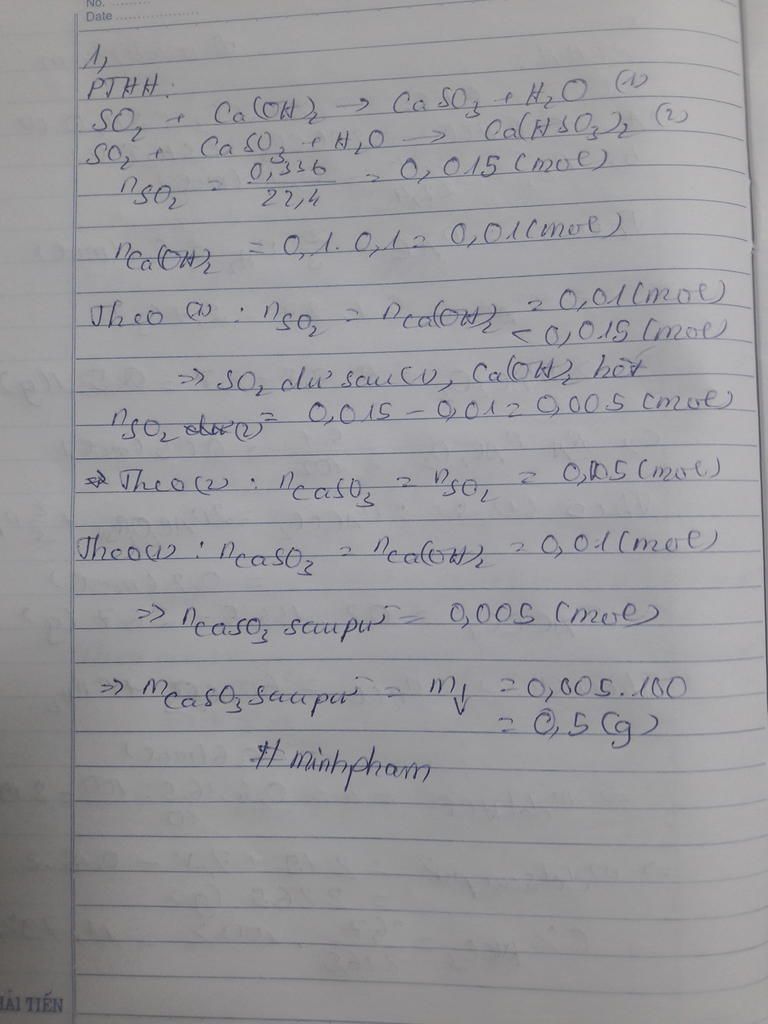 No. ..........
Date ..................
1,
PTHH:
SO₂ + Ca(OH)₂ → CaSO₃ + H₂O (1)
SO₂ + CaSO₃ + H₂O → Ca(HSO₃)₂ (2)
nSO₂ = 0,336/22,4 = 0,015 (mol)
nCa(OH)₂ = 0,1. 0,1 = 0,01 (mol)
Theo (1) : nSO₂ = nCa(OH)₂ = 0,01 (mol)
< 0,015 (mol)
=> SO₂ dư sau (1), Ca(OH)₂ hết
nSO₂ (2) = 0,015 - 0,01 = 0,005 (mol)
=> Theo (2) : nCaSO₃ = nSO₂ = 0,005 (mol)
Theo (1) : nCaSO₃ = nCa(OH)₂ = 0,01 (mol)
=> nCaSO₃ sau pư = 0,005 (mol)
=> mCaSO₃ sau pư = m↓ = 0,005.100
= 0,5 (g)
# minhpham
HẢI TIẾN